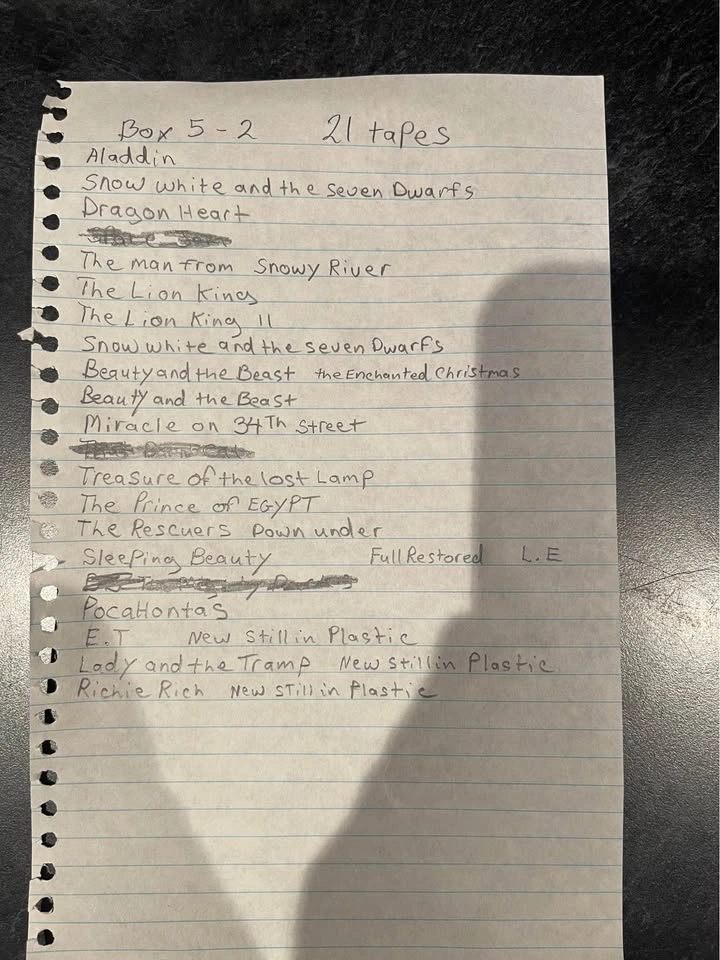 Box 5-2 21 tapes
Aladdin
Snow white and the seven Dwarfs
Dragon Heart
The man from Snowy River
The Lion King
The Lion King II
Snow white and the seven Dwarfs
Beauty and the Beast the Enchanted Christmas
Beauty and the Beast
Miracle on 34Th Street
Treasure of the lost Lamp
The Prince of EGYPT
The Rescuers Down under
Sleeping Beauty Full Restored L.E
Pocahontas
E.T New Still in Plastic
Lady and the Tramp New Still in Plastic
Richie Rich New Still in Plastic